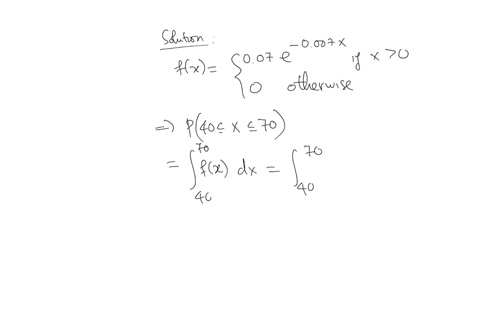 Solution :
f(x) = { 0.07 e^{-0.007x} if x > 0
0 otherwise
⇒ P(40 ≤ x ≤ 70)
= ∫_{40}^{70} f(x) dx = ∫_{40}^{70}